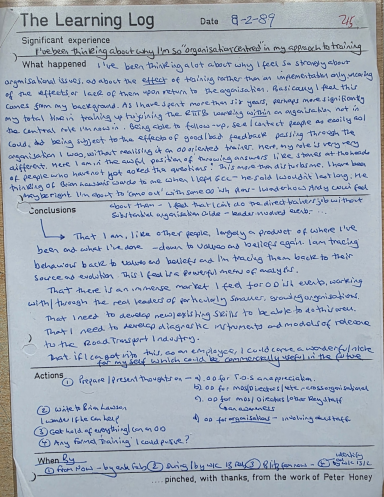 The Learning Log Date 8-2-89
Significant experience
I've been thinking about why I'm so "organisation centred" in my approach to training
What happened I've been thinking a lot about why I feel so strongly about
organisational issues, and about the effect of training rather than an implementation only meaning
of the effects or lack of them upon return to the organisation. Basically I feel this
comes from my background. As I have spent more than six years, perhaps more significantly
my total time in training up to joining the RTITB working within an organisation not in
the central role I'm now in. Being able to follow-up, see / contact people as easily as I
could. And being subject to the effects of good/bad feedback passing through the
organisation I was, without realising it an OD oriented trainer. Here, my role is very very
different. Here I am in the awful position of throwing answers like stones at the heads
of people who have not yet asked the questions! This more than disturbs me, I have been
thinking of Brian Lawson's words to me when I left GCC. He said I wouldn't last long. He
may be right. I'm about to 'come out' with some OD ish ideas - wonder how Andy would feel
about them - I feel that I can't do the direct trainers job without
substantial organisation wide - leader involved events...
Conclusions
That I am, like other people, largely a product of where I've
been and what I've done - down to values and beliefs again. I am tracing
behaviours back to values and beliefs and I'm tracing them back to their
source and evolution. This I feel is a powerful means of analysis.
That there is an immense market I feel for OD ish events, working
with/through the real leaders of particularly smaller, growing organisations.
That I need to develop new/existing skills to be able to do this even.
That I need to develop diagnostic instruments and models of relevance
to the Road Transport Industry.
That if I can get into this, as an employee, I could carve a wonderful niche
for myself which could be commercially useful in the future
Actions
① Prepare/present thoughts on - a) OD for T.O.S and appreciation.
b) OD for mos/Directors/etc - cross organisational
c) OD for mos/Directors/other key staff
awareness
d) OD for organisations - involving all staff
② Write to Brian Lawson
I wonder if he can help
③ Get hold of everything I can on OD
④ Any formal Training I could pursue?
When By
① From Now - by end Feb ② During / by w/c 13 Feb ③ Blip from now - ④ identify by w/c 13/2
pinched, with thanks, from the work of Peter Honey